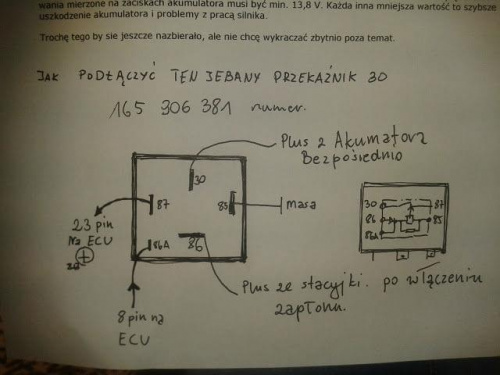 wania mierzone na zaciskach akumulatora musi być min. 13,8 V. Każda inna mniejsza wartość to szybsze
uszkodzenie akumulatora i problemy z pracą silnika.
Trochę tego by sie jeszcze nazbierało, ale nie chcę wykraczać zbytnio poza temat.
JAK PODŁĄCZYĆ TEN JEBANY PRZEKAŹNIK 30
165 306 381 numer.
Plus z Akumatora
Bezpośrednio
30
87
85
masa
23 pin
Na ECU
86A
86
8 pin na
ECU
Plus ze stacyjki. po włączeniu
zapłonu.
30 87
86 85
86A